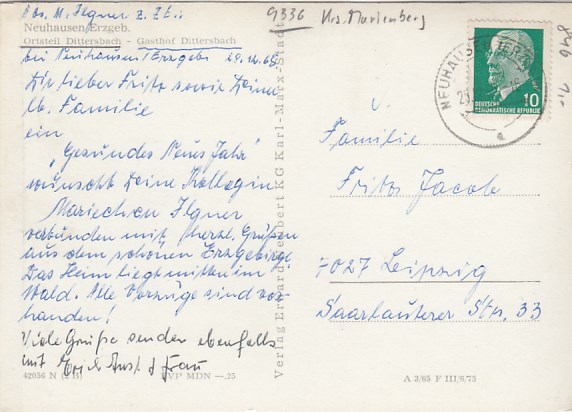 Abs. M. Ilgner z. Zt.:
Neuhausen/Erzgeb.
Ortsteil Dittersbach - Gasthof Dittersbach
bei Neuhausen/Erzgeb. 29.12.65
Dir lieber Fritz sowie Deine
lb. Familie
ein
"Gesundes Neues Jahr"
wünscht Deine Kollegin
Mariechen Ilgner
verbunden mit herzl. Grüßen
aus dem schönen Erzgebirge.
Das Heim liegt mitten im
Wald. Alle Vorzüge sind vor-
handen!
Viele Grüße senden ebenfalls
mit Erich u. Frau
42056 N (2 B) EVP MDN —.25
Verlag Erhard Neubert KG Karl-Marx-Stadt
9336 Krs. Marienberg
NEUHAUSEN (ERZGEB
DEUTSCHE
DEMOKRATISCHE REPUBLIK
10
Familie
Fritz Jacob
7027 Leipzig
Saarlauterer Str. 33
A 3/65 F III/6/75